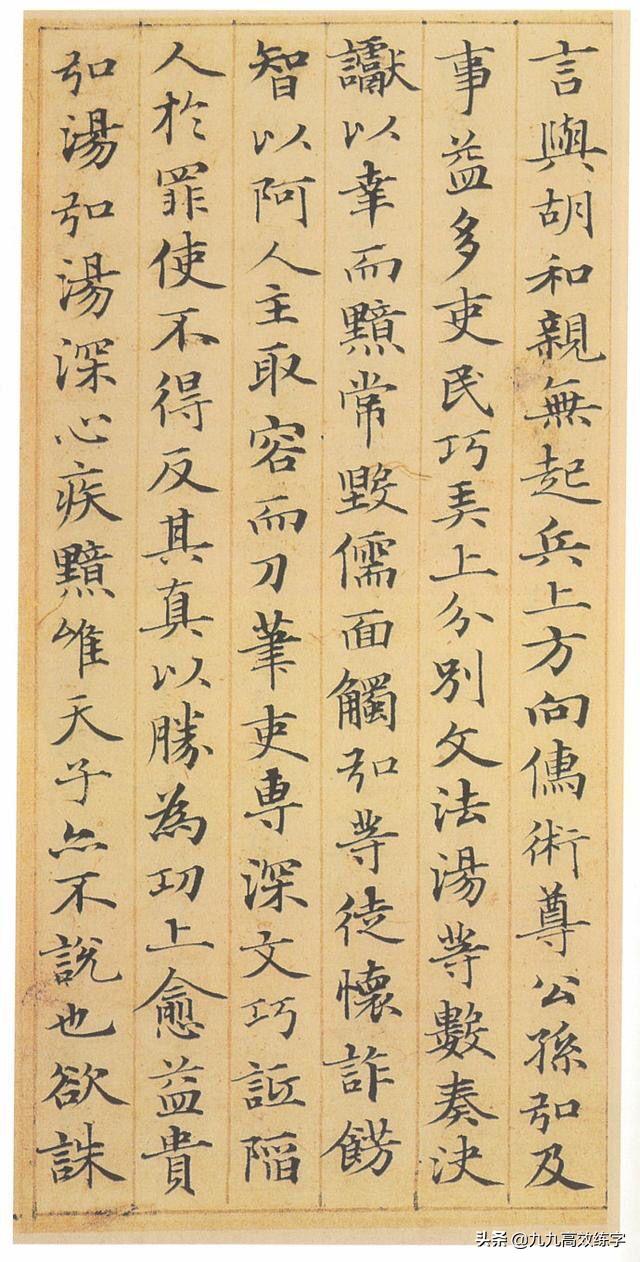 言與胡和親無起兵上方向儒術尊公孫弘及
事益多吏民巧弄上分別文法湯等數奏決
讞以幸而黯常毀儒面觸弘等徒懷詐飾
智以阿人主取容而刀筆吏專深文巧詆陷
人於罪使不得反其真以勝為功上愈益貴
弘湯弘湯深心疾黯唯天子亦不說也欲誅
头条 @九九高效练字